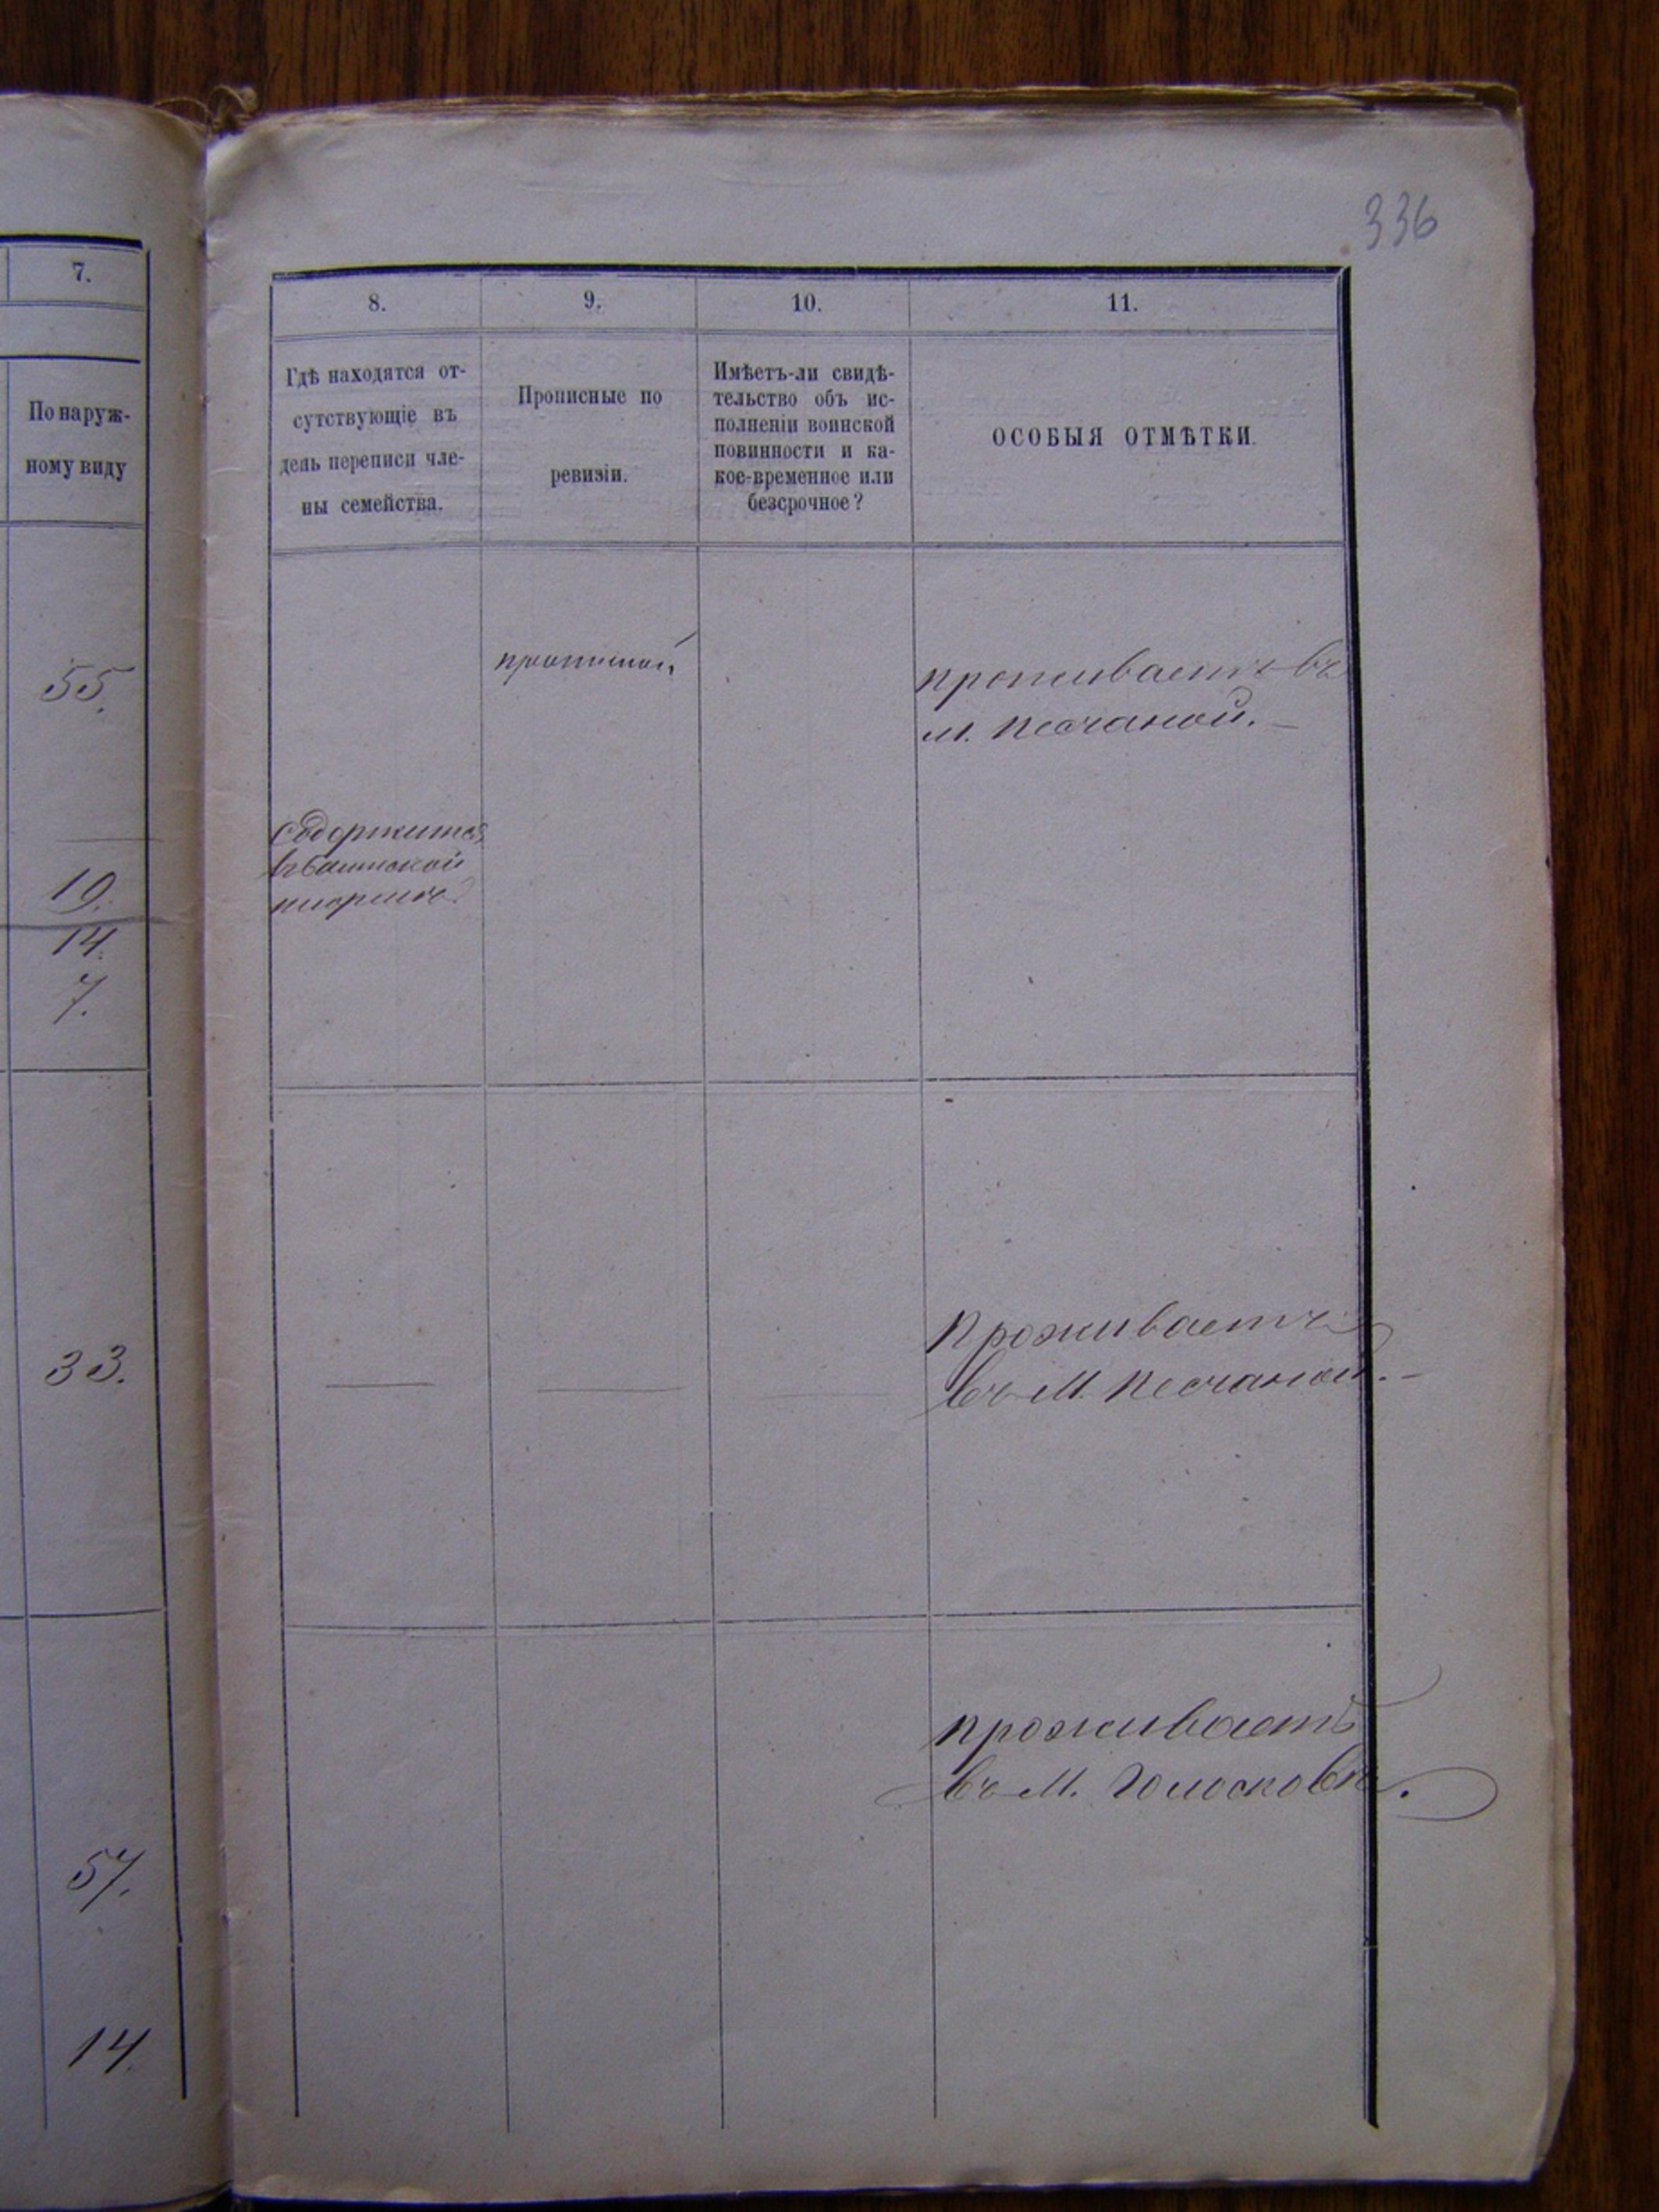 336
7.
По наруж-
ному виду
55.
19.
14.
7.
33.
57.
14.
8.
9.
10.
11.
Гдѣ находятся от-
сутствующіе въ
день переписи чле-
ны семейства.
Прописные по
ревизіи.
Имѣетъ-ли свидѣ-
тельство объ ис-
полненіи воинской
повинности и ка-
кое-временное или
безсрочное?
ОСОБЫЯ ОТМѢТКИ.
прописной
проживаетъ въ
м. Песчаной.
Содержится
въ Балтской
тюрьмѣ
Проживаетъ
въ М. Песчаной.
проживаетъ
въ М. Голосковѣ.